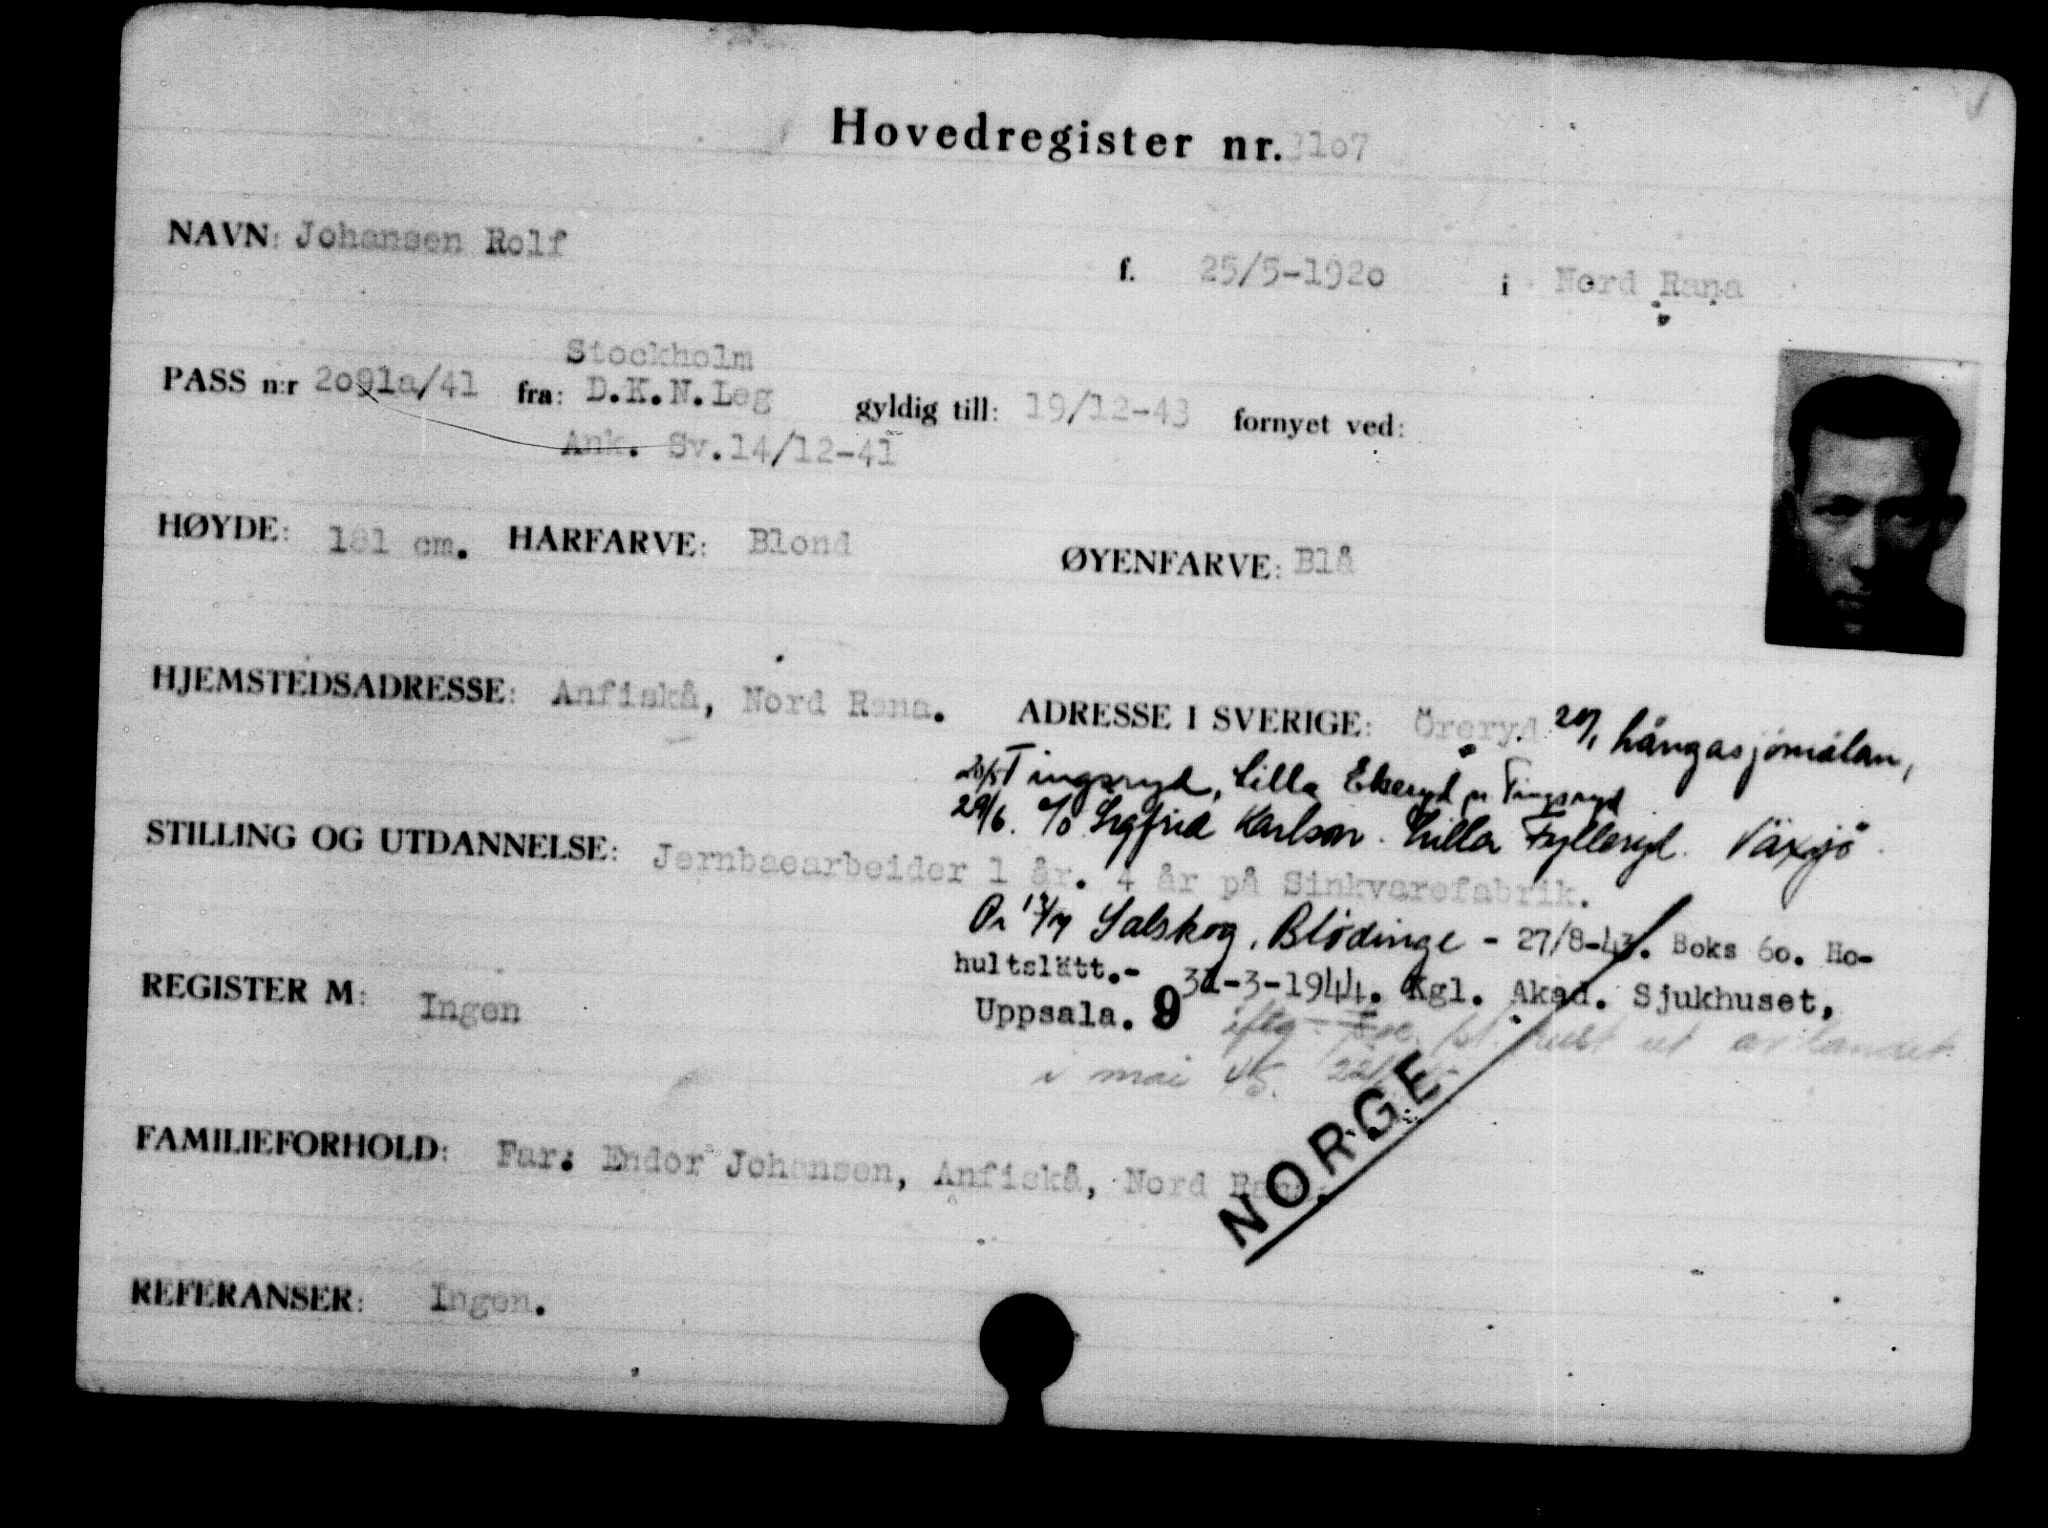 Hovedregister nr. 3107
NAVN: Johansen Rolf f. 25/5-1920 i Nord Rana
Stockholm
PASS n:r 2091a/41 fra: D.K.N.Leg gyldig till: 19/12-43 fornyet ved:
Ank. Sv.14/12-41
HØYDE: 181 cm. HÅRFARVE: Blond ØYENFARVE: Blå
HJEMSTEDSADRESSE: Anfiskå, Nord Rana. ADRESSE I SVERIGE: Öreryd 20/1 Långasjömålan,
20/5 Tingsryd, Lilla Ekeryd pr Tingsryd
29/6. c/o Sigfrid Karlson. Lilla Fylleryd. Växsjö.
STILLING OG UTDANNELSE: Jernbaearbeider 1 år. 4 år på Sinkvarefabrik.
Pr Salskog, Blödinge - 27/8-43. Boks 60. Ho-
hultslätt.- 31-3-1944. Kgl. Akad. Sjukhuset,
Uppsala. 9
REGISTER M: Ingen
iflg. reist ut av landet
i mai 45.
NORGE
FAMILIEFORHOLD: Far: Endor Johansen, Anfiskå, Nord Rana.
REFERANSER: Ingen.